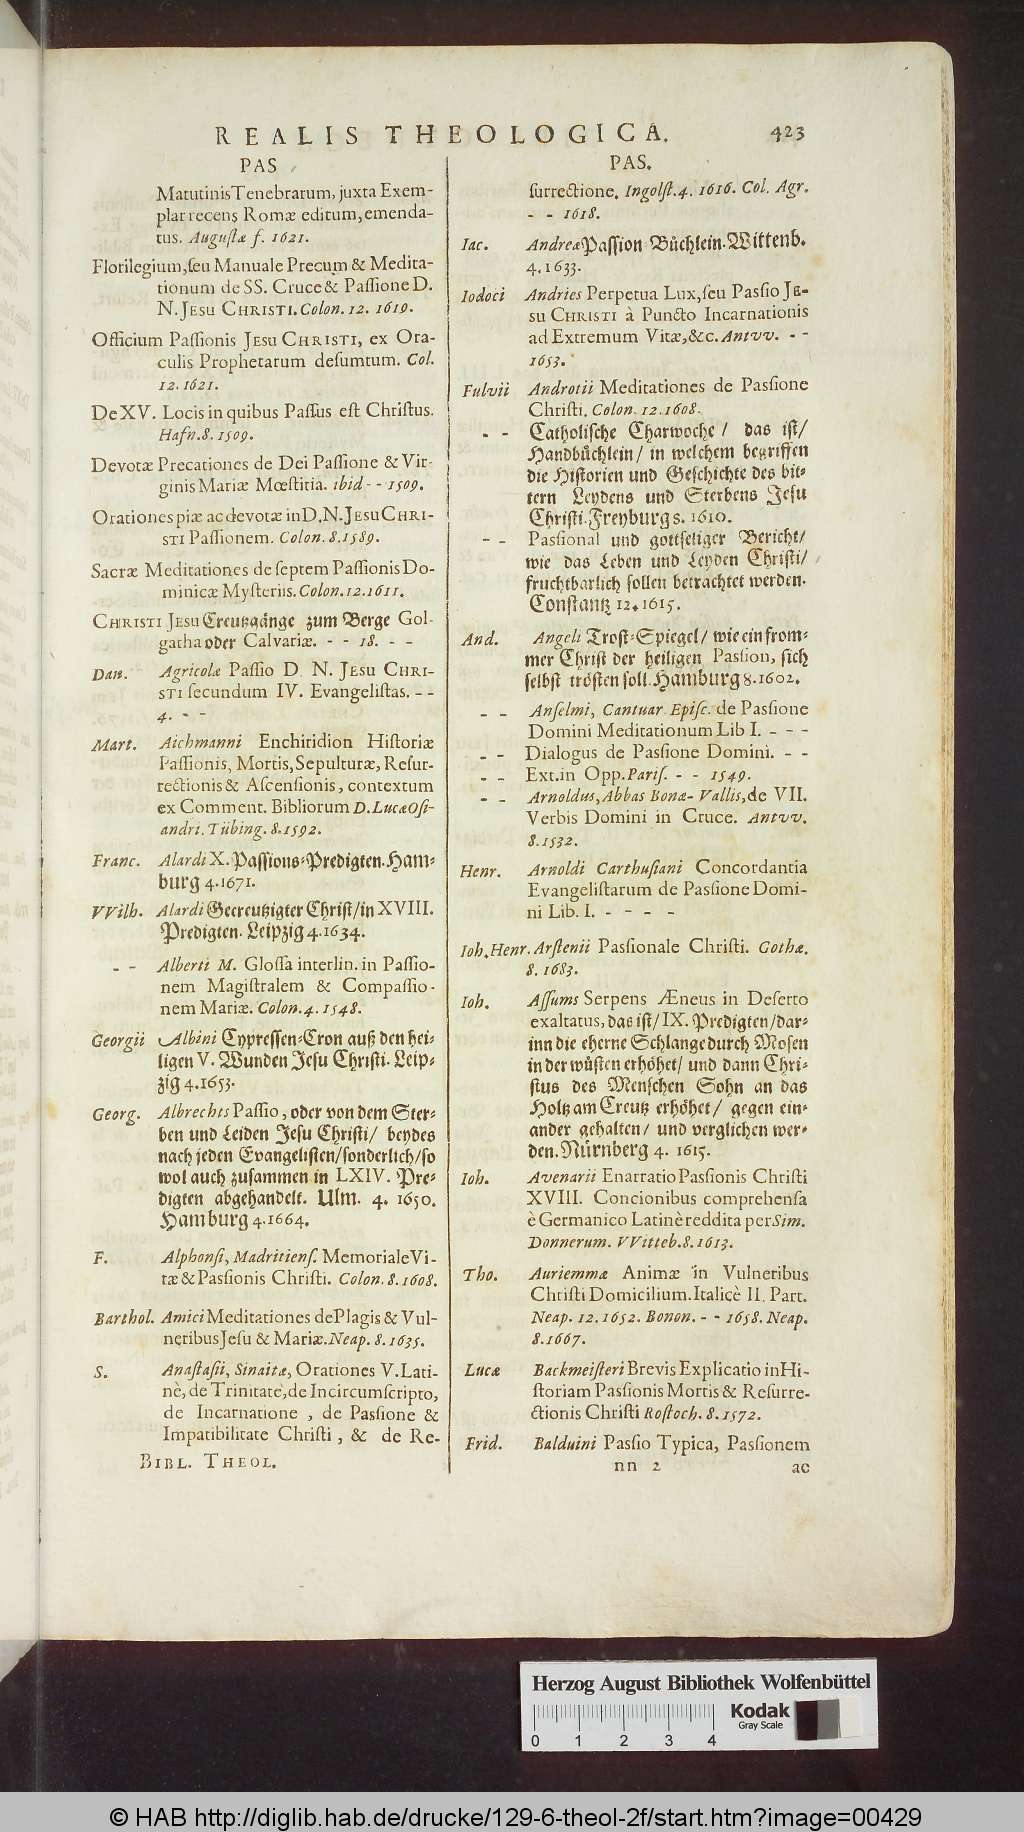 REALIS THEOLOGICA. 423
PAS
Matutinis Tenebrarum, juxta Exem-
plar recens Romæ editum, emenda-
tus. Augustæ f. 1621.
Florilegium, seu Manuale Precum & Medita-
tionum de SS. Cruce & Passione D.
N. JESU CHRISTI. Colon. 12. 1619.
Officium Passionis JESU CHRISTI, ex Ora-
culis Prophetarum desumtum. Col.
12. 1621.
De XV. Locis in quibus Passus est Christus.
Hafn. 8. 1509.
Devotæ Precationes de Dei Passione & Vir-
ginis Mariæ Mœstitia. ibid - - 1509.
Orationes piæ ac devotæ in D. N. JESU CHRI-
STI Passionem. Colon. 8. 1589.
Sacræ Meditationes de septem Passionis Do-
minicæ Mysteriis. Colon. 12. 1611.
CHRISTI JESU Creutzgänge zum Berge Gol-
gatha oder Calvariæ. - - 18. - -
Dan. Agricolæ Passio D. N. JESU CHRI-
STI secundum IV. Evangelistas. - -
4. - -
Mart. Aichmanni Enchiridion Historiæ
Passionis, Mortis, Sepulturæ, Resur-
rectionis & Ascensionis, contextum
ex Comment. Bibliorum D. Lucæ Osi-
andri. Tübing. 8. 1592.
Franc. Alardi X. Passions-Predigten. Ham-
burg 4. 1671.
VVilh. Alardi Gecreutzigter Christ/ in XVIII.
Predigten. Leipzig 4. 1634.
- - Alberti M. Glossa interlin. in Passio-
nem Magistralem & Compassio-
nem Mariæ. Colon. 4. 1548.
Georgii Albini Cypressen-Cron auß den hei-
ligen V. Wunden Jesu Christi. Leip-
zig 4. 1653.
Georg. Albrechts Passio, oder von dem Ster-
ben und Leiden Jesu Christi/ beydes
nach jeden Evangelisten/ sonderlich/ so
wol auch zusammen in LXIV. Pre-
digten abgehandelt. Ulm. 4. 1650.
Hamburg 4. 1664.
F. Alphonsi, Madritiens. Memoriale Vi-
tæ & Passionis Christi. Colon. 8. 1608.
Barthol. Amici Meditationes de Plagis & Vul-
neribus Jesu & Mariæ. Neap. 8. 1635.
S. Anastasii, Sinaitæ, Orationes V. Lati-
nè, de Trinitate, de Incircumscripto,
de Incarnatione, de Passione &
Impatibilitate Christi, & de Re-
BIBL. THEOL.
PAS.
surrectione. Ingolst. 4. 1616. Col. Agr.
- - 1618.
Iac. Andreæ Passion-Büchlein. Wittenb.
4. 1633.
Iodoci Andries Perpetua Lux, seu Passio JE-
SU CHRISTI à Puncto Incarnationis
ad Extremum Vitæ, &c. Antvv. - -
1653.
Fulvii Androtii Meditationes de Passione
Christi. Colon. 12. 1608.
- - Catholische Charwoche/ das ist/
Handbüchlein/ in welchem begriffen
die Historien und Geschichte des bit-
tern Leydens und Sterbens Jesu
Christi. Freyburg 8. 1610.
- - Passional und gottseliger Bericht/
wie das Leben und Leyden Christi/
fruchtbarlich sollen betrachtet werden.
Constantz 12. 1615.
And. Angeli Trost-Spiegel/ wie ein from-
mer Christ der heiligen Passion, sich
selbst trösten soll. Hamburg 8. 1602.
- - Anselmi, Cantuar. Episc. de Passione
Domini Meditationum Lib I. - - -
- - Dialogus de Passione Domini. - -
- - Ext. in Opp. Paris. - - 1549.
- - Arnoldus, Abbas Bonæ-Vallis, de VII.
Verbis Domini in Cruce. Antvv.
8. 1532.
Henr. Arnoldi Carthusiani Concordantia
Evangelistarum de Passione Domi-
ni Lib. I. - - - -
Ioh. Henr. Arstenii Passionale Christi. Gothæ.
8. 1683.
Ioh. Assums Serpens Æneus in Deserto
exaltatus, das ist/ IX. Predigten/ dar-
inn die eherne Schlange durch Mosen
in der wüsten erhöhet/ und dann Chri-
stus des Menschen Sohn an das
Holtz am Creutz erhöhet/ gegen ein-
ander gehalten/ und verglichen wer-
den. Nürnberg 4. 1615.
Ioh. Avenarii Enarratio Passionis Christi
XVIII. Concionibus comprehensa
è Germanico Latinè reddita per Sim.
Donnerum. VVitteb. 8. 1613.
Tho. Auriemmæ Animæ in Vulneribus
Christi Domicilium. Italicè II. Part.
Neap. 12. 1652. Bonon. - - 1658. Neap.
8. 1667.
Lucæ Backmeisteri Brevis Explicatio in Hi-
storiam Passionis Mortis & Resurre-
ctionis Christi Rostoch. 8. 1572.
Frid. Balduini Passio Typica, Passionem
nn 2 ac
Herzog August Bibliothek Wolfenbüttel
Kodak
Gray Scale
0 1 2 3 4
© HAB http://diglib.hab.de/drucke/129-6-theol-2f/start.htm?image=00429